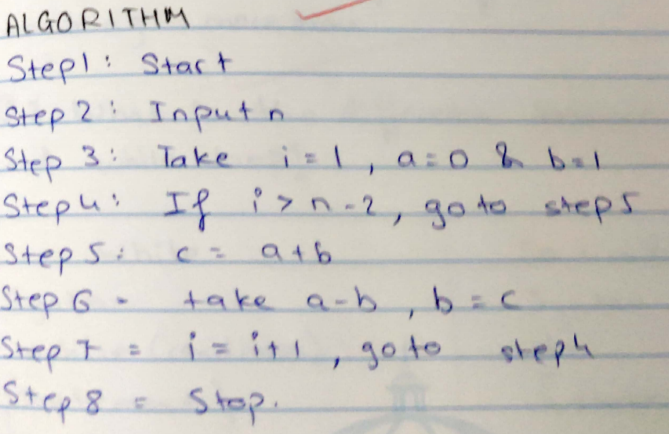 ALGORITHM
Step1: Start
Step 2: Input n
Step 3: Take i = 1, a=0 & b=1
Step4: If i > n-2, go to step5
Step 5: c = a+b
Step 6 - take a-b, b = c
Step 7 = i = i+1, go to step4
Step 8 = Stop.